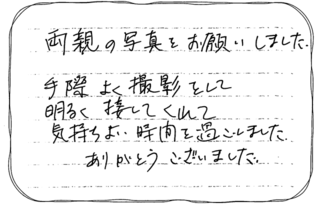 両親の写真をお願いしました.
手際よく撮影をして
明るく接してくれて
気持ちよい時間を過ごしました.
ありがとうございました.